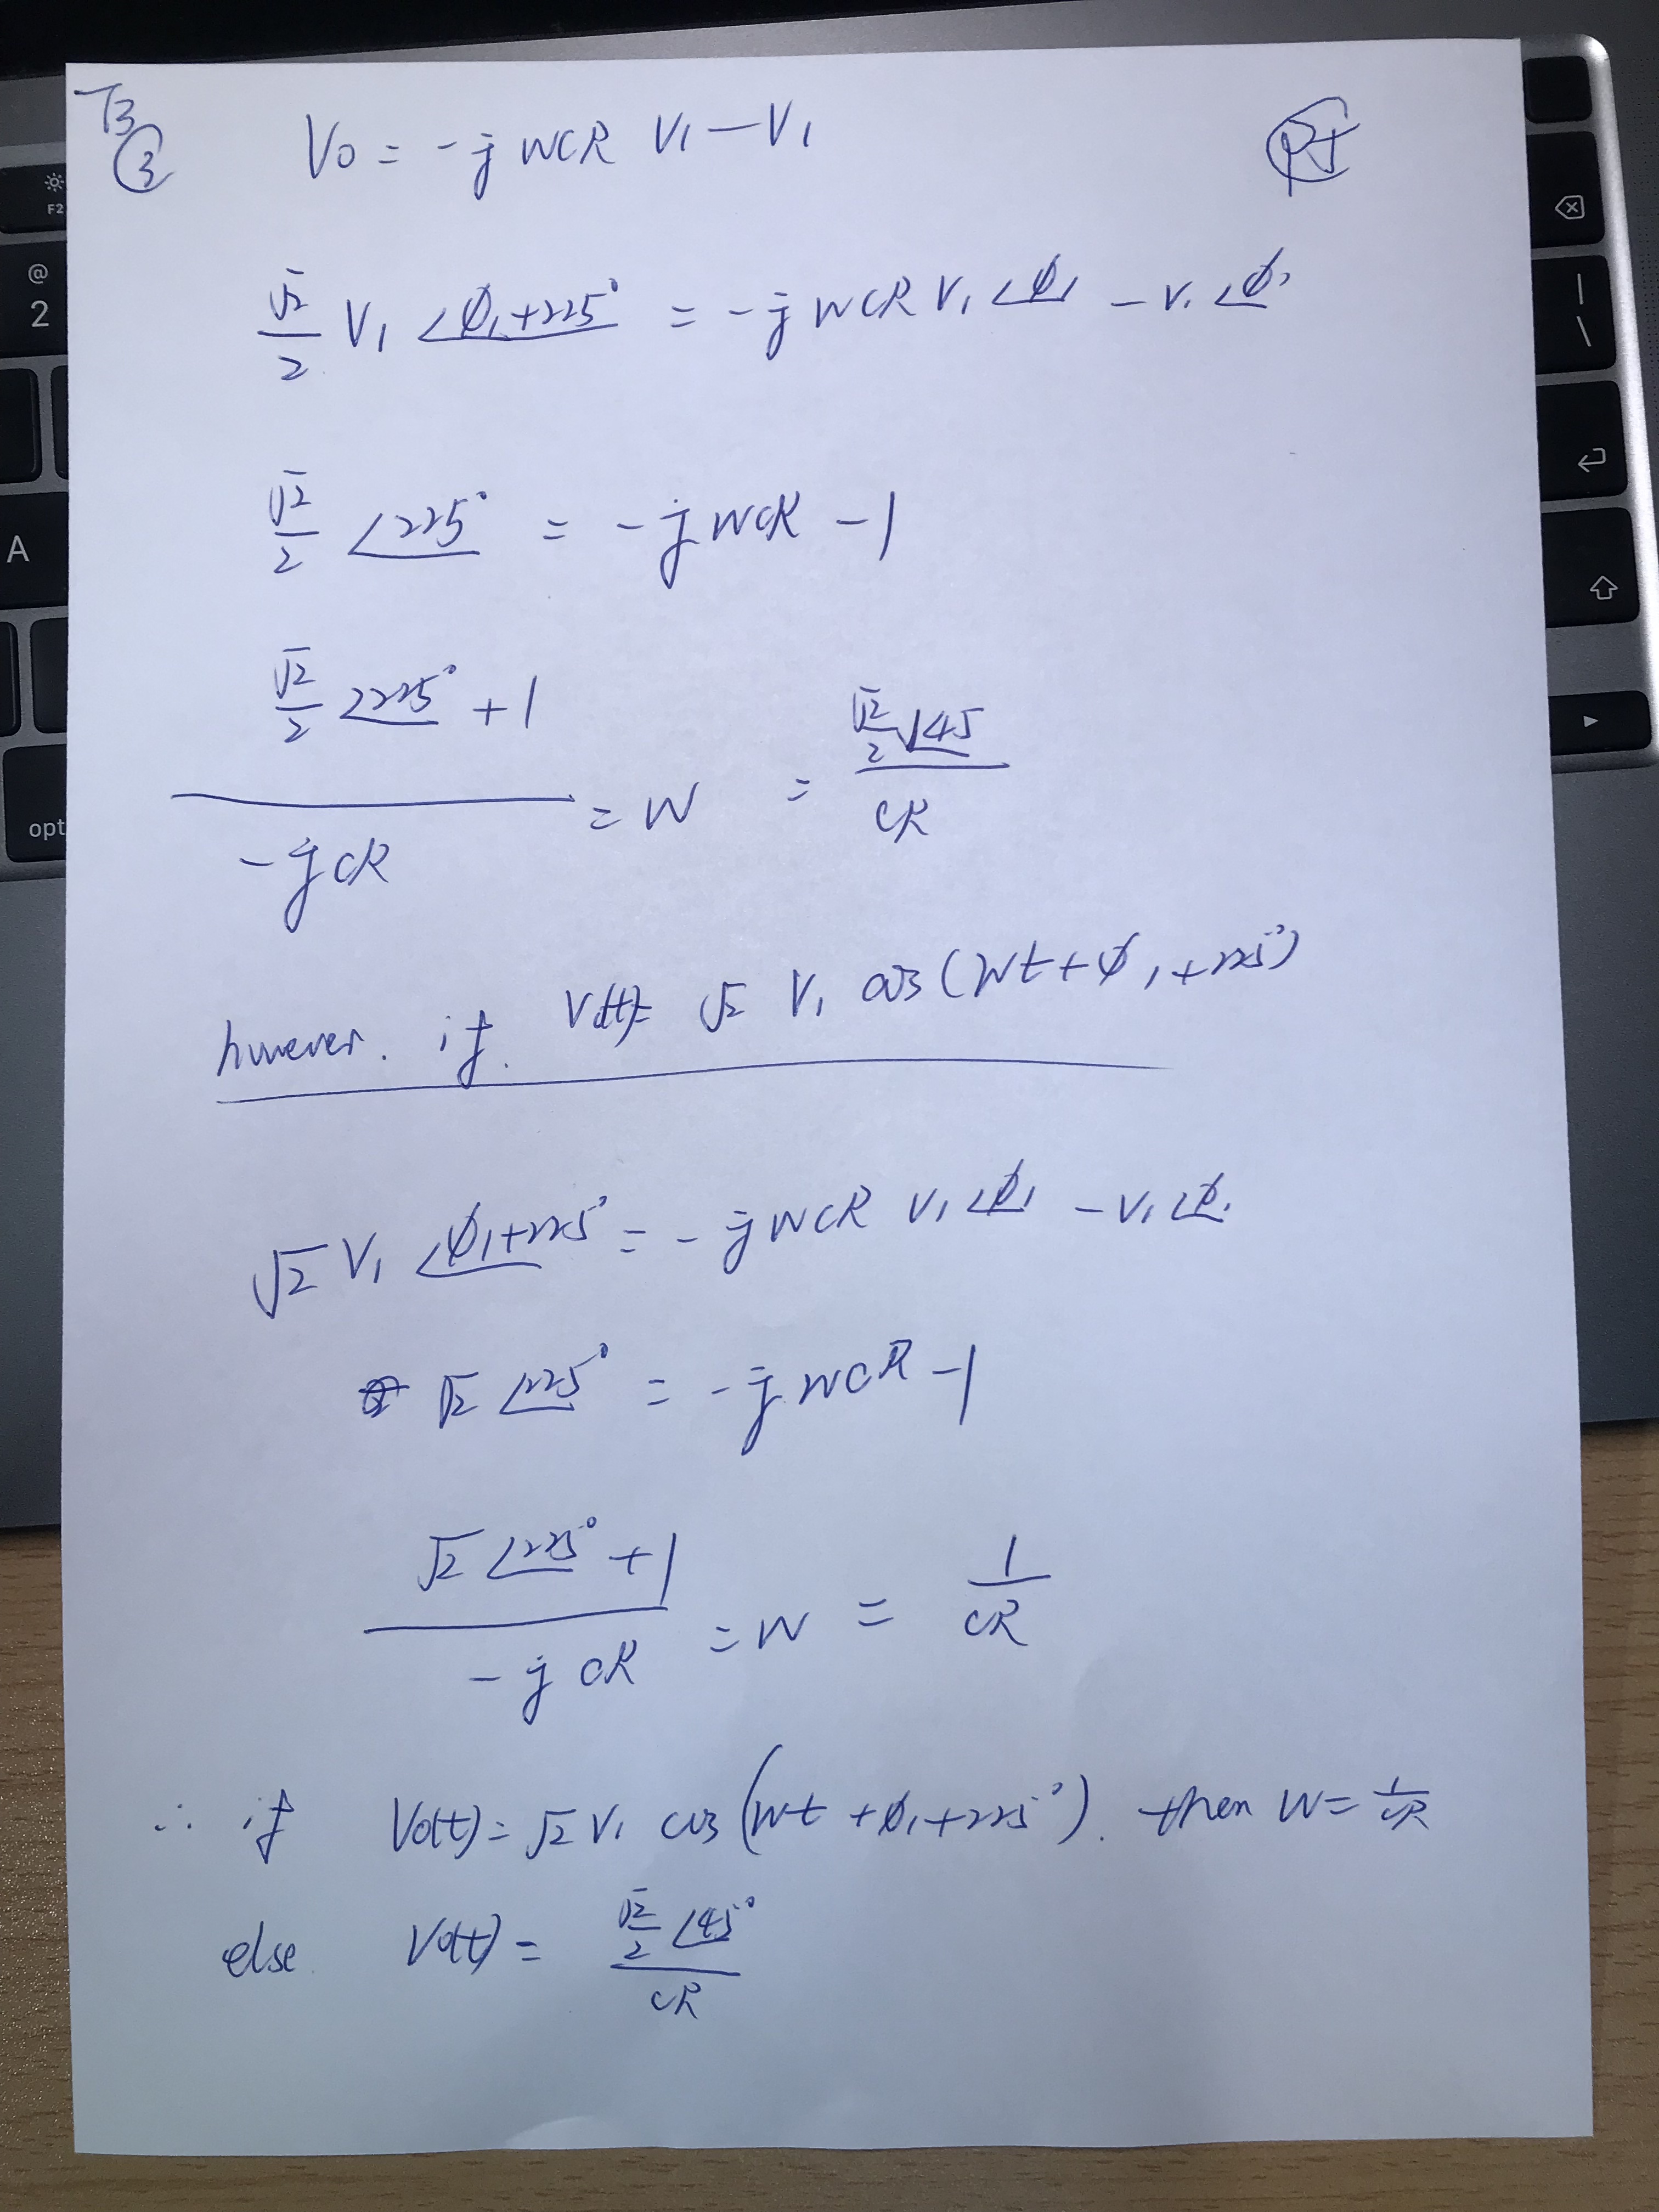 T3
③
P5
V0 = -jWCR V1 - V1
√2/2 V1 ∠ϕ1+225° = -jWCR V1 ∠ϕ1 - V1 ∠ϕ1
√2/2 ∠225° = -jWCR - 1
(√2/2 ∠225° + 1)/(-jCR) = W = (√2/2 ∠45)/(CR)
however. if. Vo(t)= √2 V1 cos(Wt+ϕ1+225°)
√2 V1 ∠ϕ1+225° = -jWCR V1 ∠ϕ1 - V1 ∠ϕ1
√2 ∠225° = -jWCR - 1
(√2 ∠225° + 1)/(-jCR) = W = 1/(CR)
∴ if Vo(t) = √2 V1 cos(Wt + ϕ1 + 225°). then W = 1/CR
else Vo(t) = (√2/2 ∠45°)/(CR)
F2
@
2
A
opt
|
\